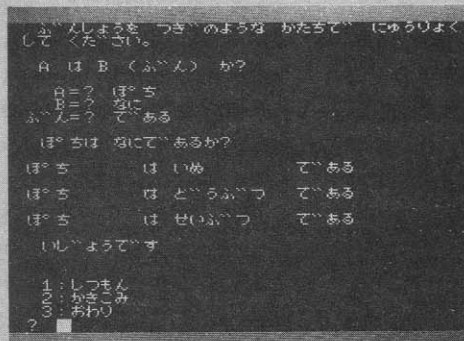 ぶんしょうを つぎのような かたちで にゅうりよく
して ください。
A は B (ぶん) か?
A=? ぽち
B=? なに
ぶん=? である
ぽちは なにであるか?
ぽち は いぬ である
ぽち は どうぶつ である
ぽち は せいぶつ である
いじようです
1:しつもん
2:かきこみ
3:おわり
?